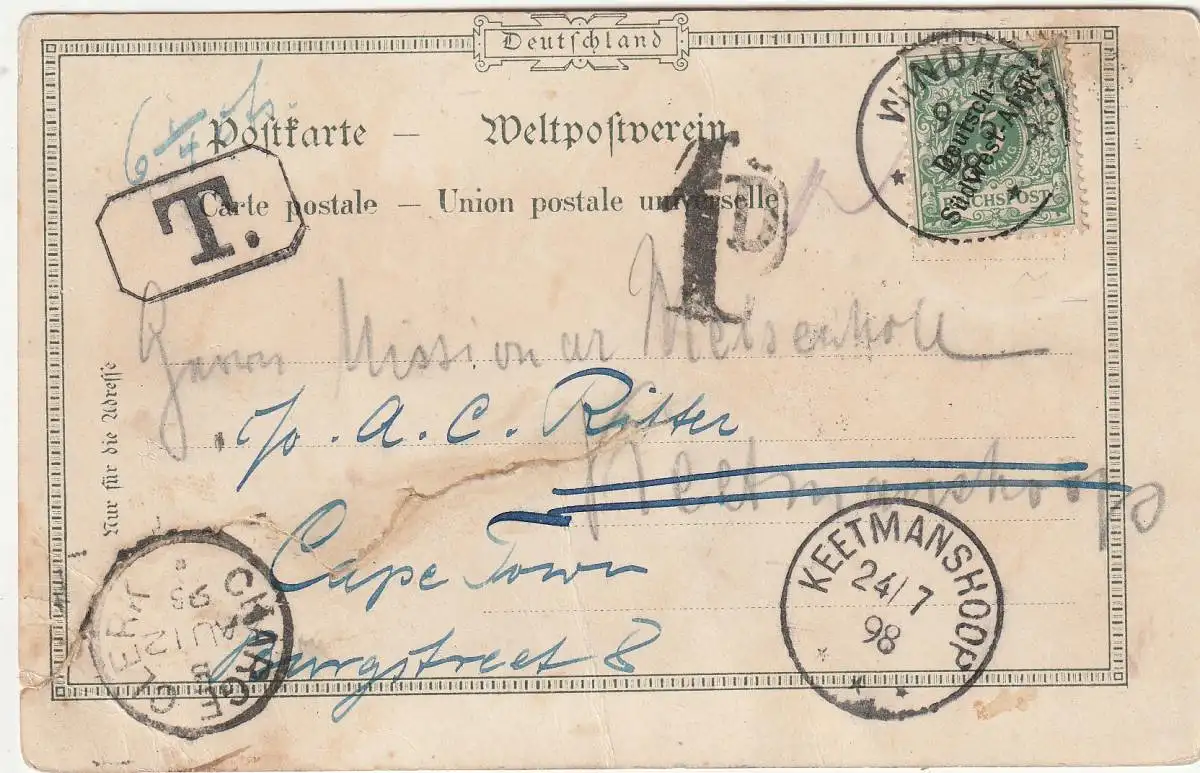 Deutschland
6 1/4
Postkarte — Weltpostverein
Carte postale — Union postale universelle
T.
1D
WINDHOEK
Deutsch-
Südwest-Afrika
PFENNIG
REICHSPOST
Nur für die Adresse
Herrn Missionar
c/o. A. C. Ritter
Keetmanshoop
Cape Town
Burgstreet 8
KEETMANSHOOP
24/7
98
CHARGE CLERK
AU 1
98